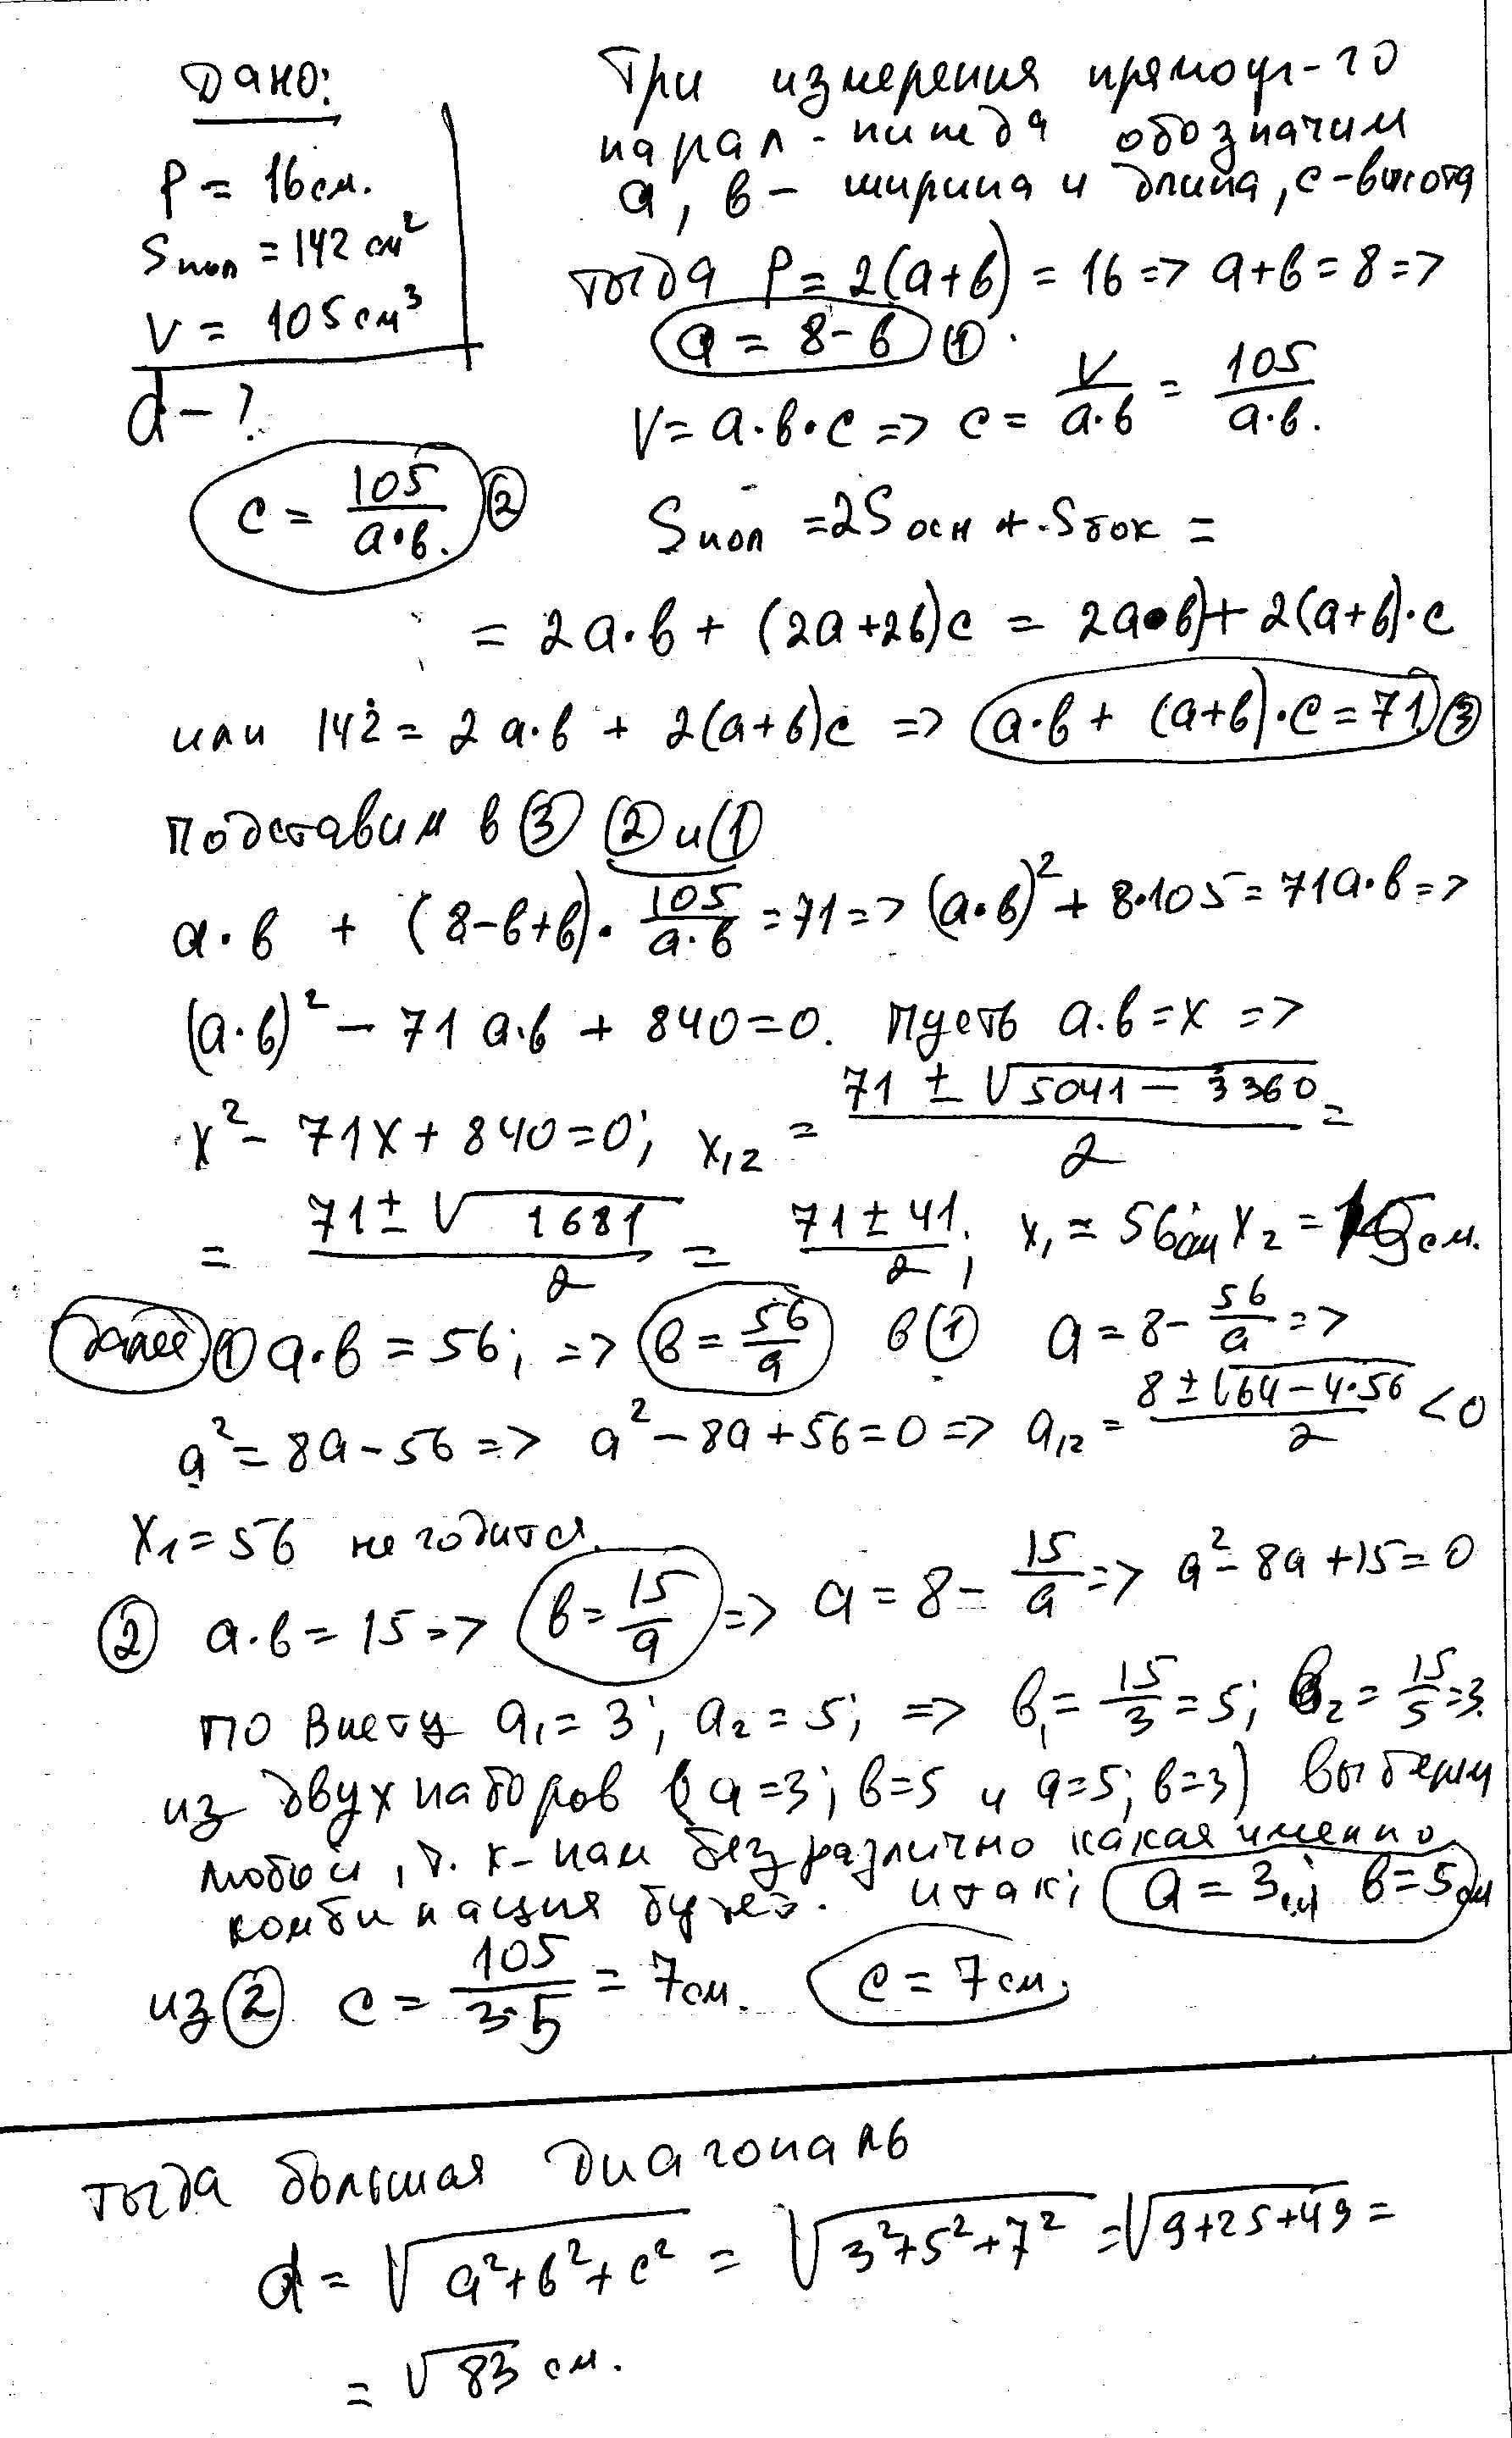 Дано:
P = 16 см.
Sпол = 142 см²
V = 105 см³
d - ?
Три измерения прямоуг-го
парал-пипеда обозначим
a, b - ширина и длина, c - высота
тогда P = 2(a+b) = 16 => a+b = 8 =>
a = 8-b ①.
V = a·b·c => c = V/(a·b) = 105/(a·b).
c = 105/(a·b). ②
Sпол = 2Sосн + Sбок =
= 2a·b + (2a+2b)c = 2a·b + 2(a+b)·c
или 142 = 2a·b + 2(a+b)c => a·b + (a+b)·c = 71 ③
подставим в ③ ② и ①
a·b + (8-b+b)·105/(a·b) = 71 => (a·b)² + 8·105 = 71a·b =>
(a·b)² - 71a·b + 840 = 0. Пусть a·b = x =>
x² - 71x + 840 = 0; x₁₂ = (71 ± √(5041 - 3360))/2 =
= (71 ± √1681)/2 = (71 ± 41)/2; x₁ = 56 см x₂ = 15 см.
далее ① a·b = 56; => b = 56/a в ① a = 8 - 56/a =>
a² = 8a - 56 => a² - 8a + 56 = 0 => a₁₂ = (8 ± √(64 - 4·56))/2 < 0
x₁ = 56 не годится.
② a·b = 15 => b = 15/a => a = 8 - 15/a => a² - 8a + 15 = 0
по Виету a₁ = 3; a₂ = 5; => b₁ = 15/3 = 5; b₂ = 15/5 = 3.
из двух наборов (a=3; b=5 и a=5; b=3) выберем
любой, т.к - нам безразлично какая именно
комбинация будет. итак; a = 3 см b = 5 см
из ② c = 105/(3·5) = 7 см. c = 7 см;
тогда большая диагональ
d = √(a²+b²+c²) = √(3²+5²+7²) = √(9+25+49) =
= √83 см.